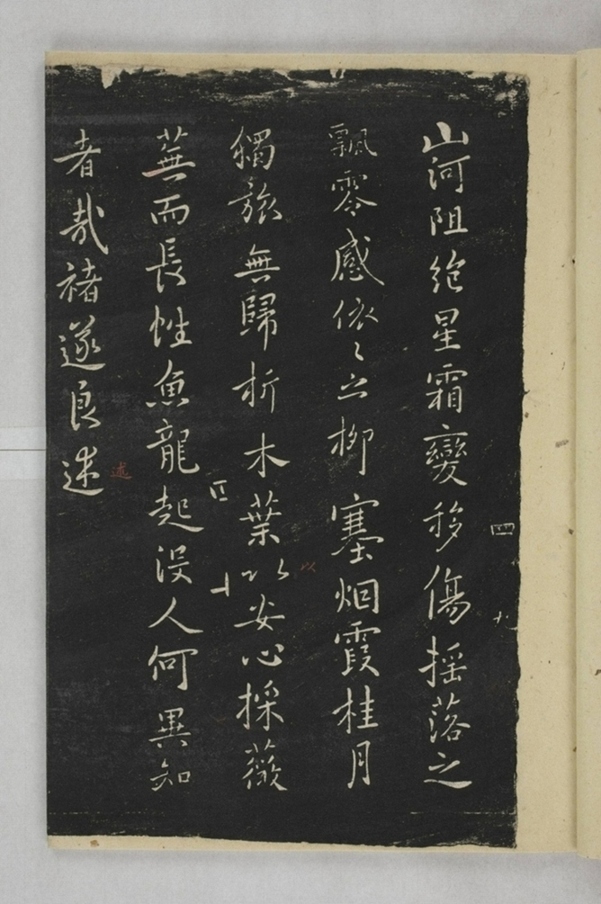 山河阻絶星霜變移傷摇落之
飄零感依〻之柳塞烟霞桂月
獨旅無歸折木葉以安心採薇
蕪而長性魚龍起没人何異知
者哉褚遂良述
四
九
四
十
以
述